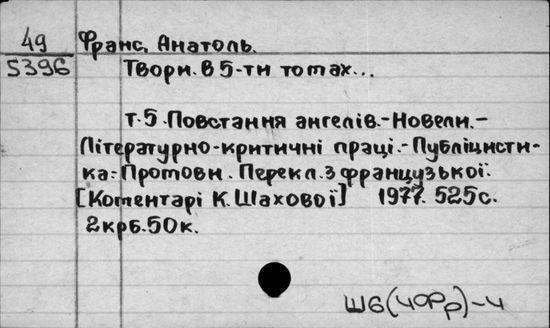 49 Франс, Анатоль.
5396 Твори. В 5-ти томах...
т.5. Повстання ангелів.-Новели.-
Літературно-критичні праці.-Публіцисти-
ка.-Промови. Перекл. з французької.
[Коментарі К. Шахової] 1977. 525 с.
2 крб. 50 к.
Ш6(4Фр)-4